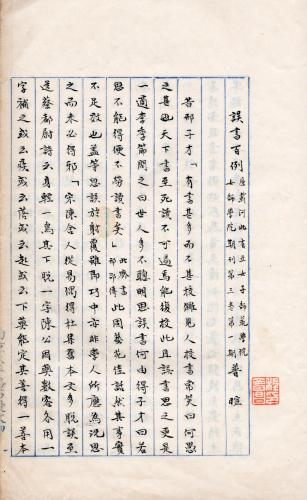 誤書百例 原載河北省立女子師範學院
女師學院期刊第三卷第一期 普暄
昔邢子才「有書甚多而不甚校讎見人校書常笑曰何愚
之甚也天下書至死讀不可遍焉能復校此且誤書思之更是
一適李季節問之曰世人多不聰明思誤書何由得子才曰若
思不能得便不勞讀書矣」北齊書邢邵傳此固藝苑佳話然其事實
不足效也蓋等思誤於射覆雖即巧中亦非常人所應為況思
之而未必得邪「宋陳舍人從易偶得杜集舊本文多脫誤至
送蔡都尉詩云身輕一鳥其下脫一字陳公因與數客各用一
字補之或云疾或云落或云起或云下莫能定其後得一善本